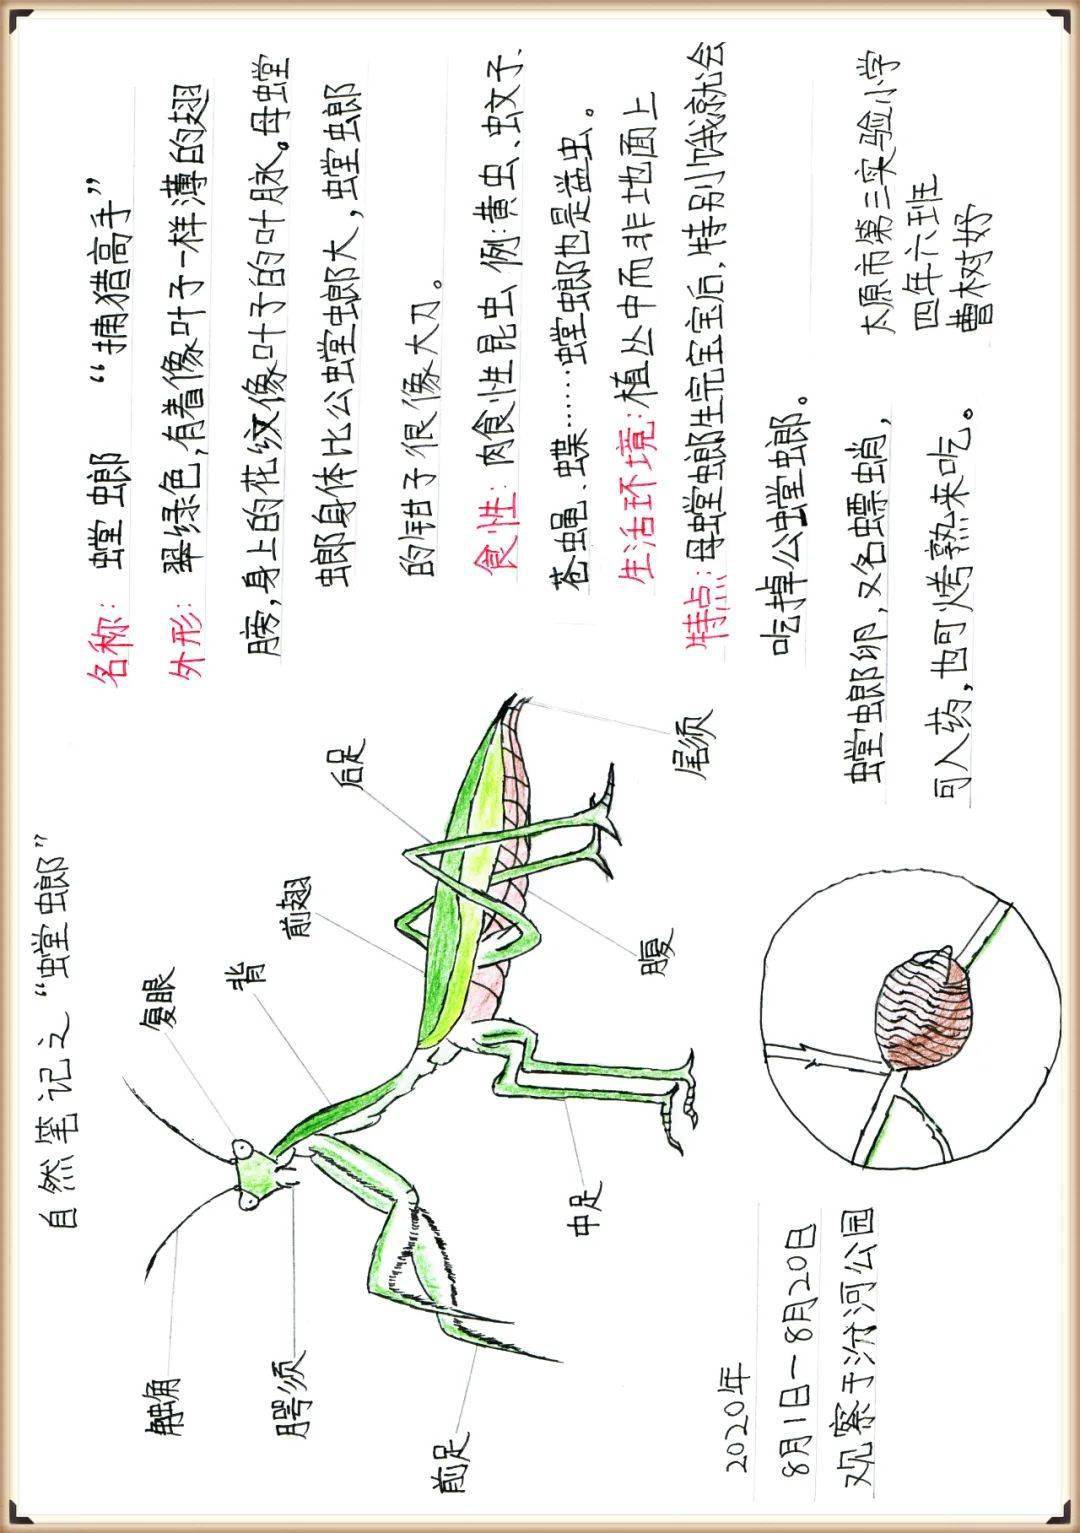 自然笔记之“螳螂”
触角
复眼
背
前翅
后足
腭须
前足
中足
腹
尾须
2020年
8月1日—8月20日
观察于汾河公园
名称: 螳螂 “捕猎高手”
外形: 翠绿色,有着像叶子一样薄的翅
膀,身上的花纹像叶子的叶脉。母螳
螂身体比公螳螂大,螳螂
的钳子很像大刀。
食性:肉食性昆虫,例:黄虫、蚊子、
苍蝇、蝶……螳螂也是益虫。
生活环境:植丛中而非地面上
特点:母螳螂生完宝宝后,特别饿就会
吃掉公螳螂。
螳螂卵,又名螵蛸,
可入药,也可烤熟来吃。
太原市第三实验小学
四年六班
曹树妤